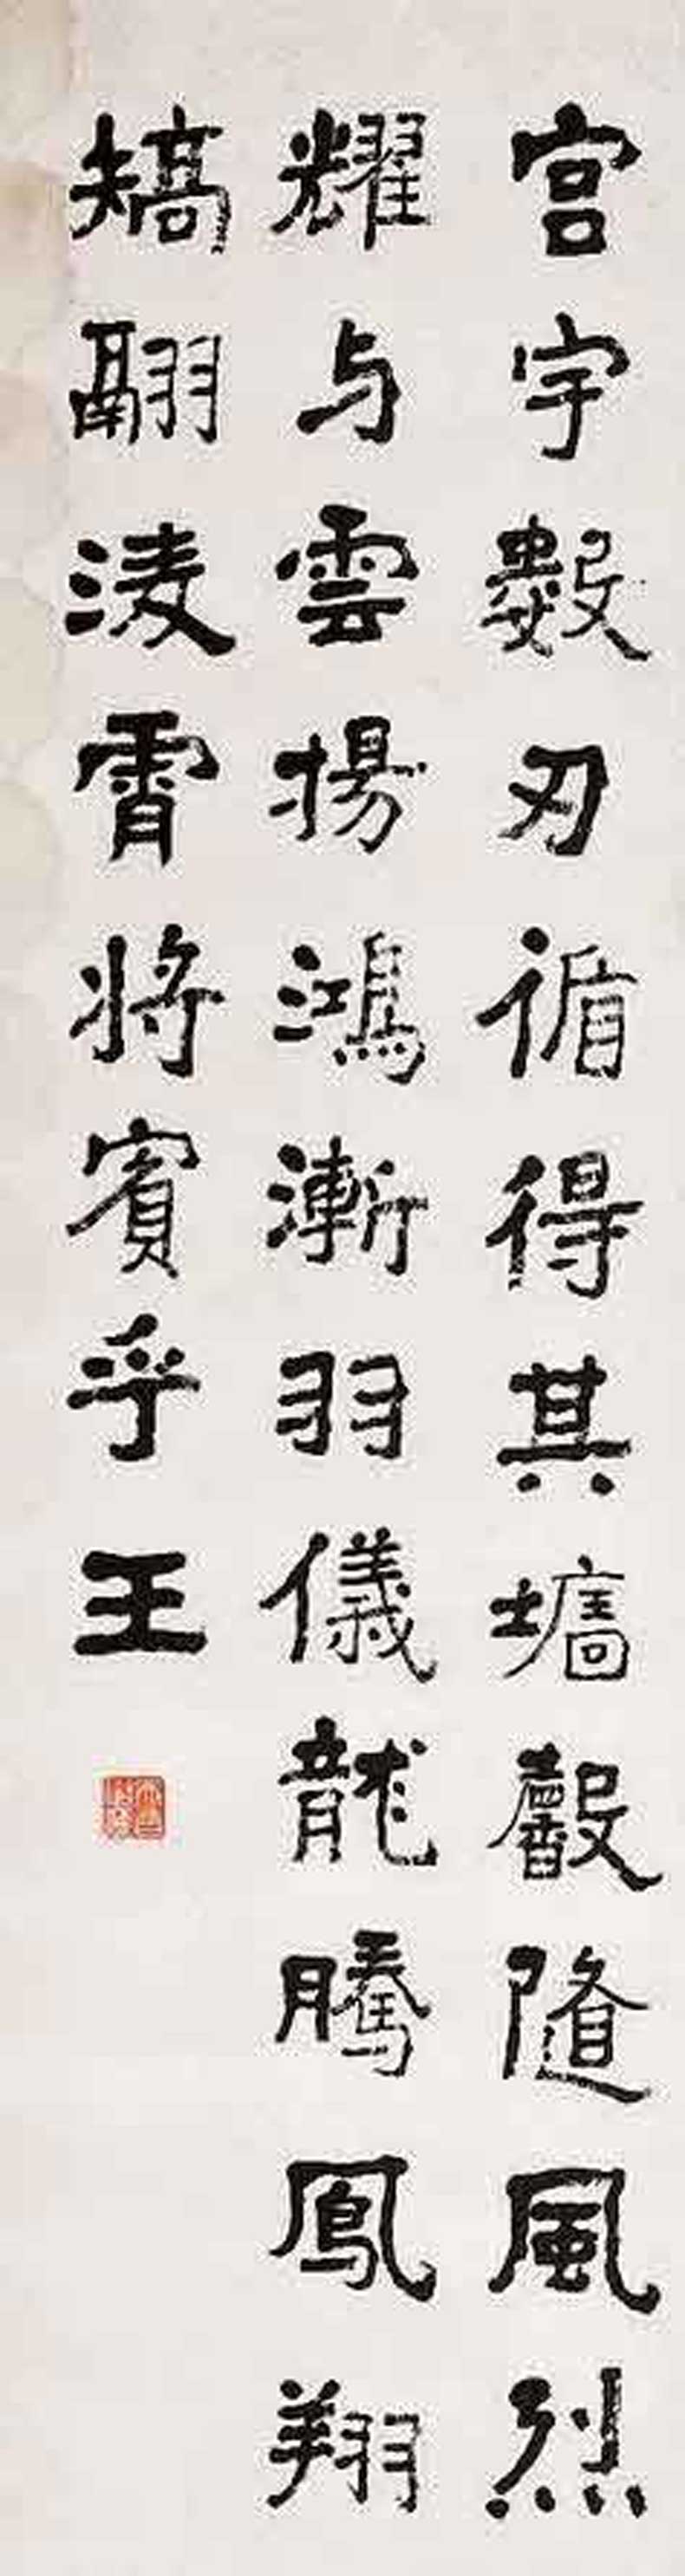 宫宇數刃循得其墻馨隨風烈
耀与雲揚鴻漸羽儀龍騰鳳翔
矯翮淩霄將賓乎王